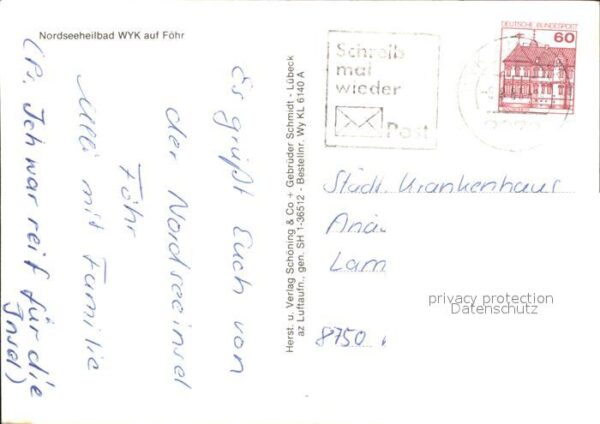 Nordseeheilbad WYK auf Föhr
Es grüßt Euch von
der Nordseeinsel
Föhr
Ulli mit Familie
(Ps. Ich war reif für die
Insel)
Herst. u. Verlag Schöning & Co + Gebrüder Schmidt - Lübeck
az Luftaufn., gen. SH 1-36512 - Bestellnr. Wy KL 6140 A
Schreib
mal
wieder
Post
DEUTSCHE BUNDESPOST
60
Städt. Krankenhaus
Lam
privacy protection
Datenschutz
8750